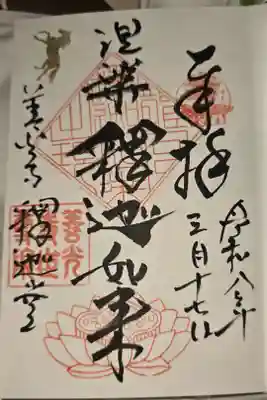 奉拝
令和八年
三月十七日
涅槃 釋迦如来
善光寺
釋迦堂
善光